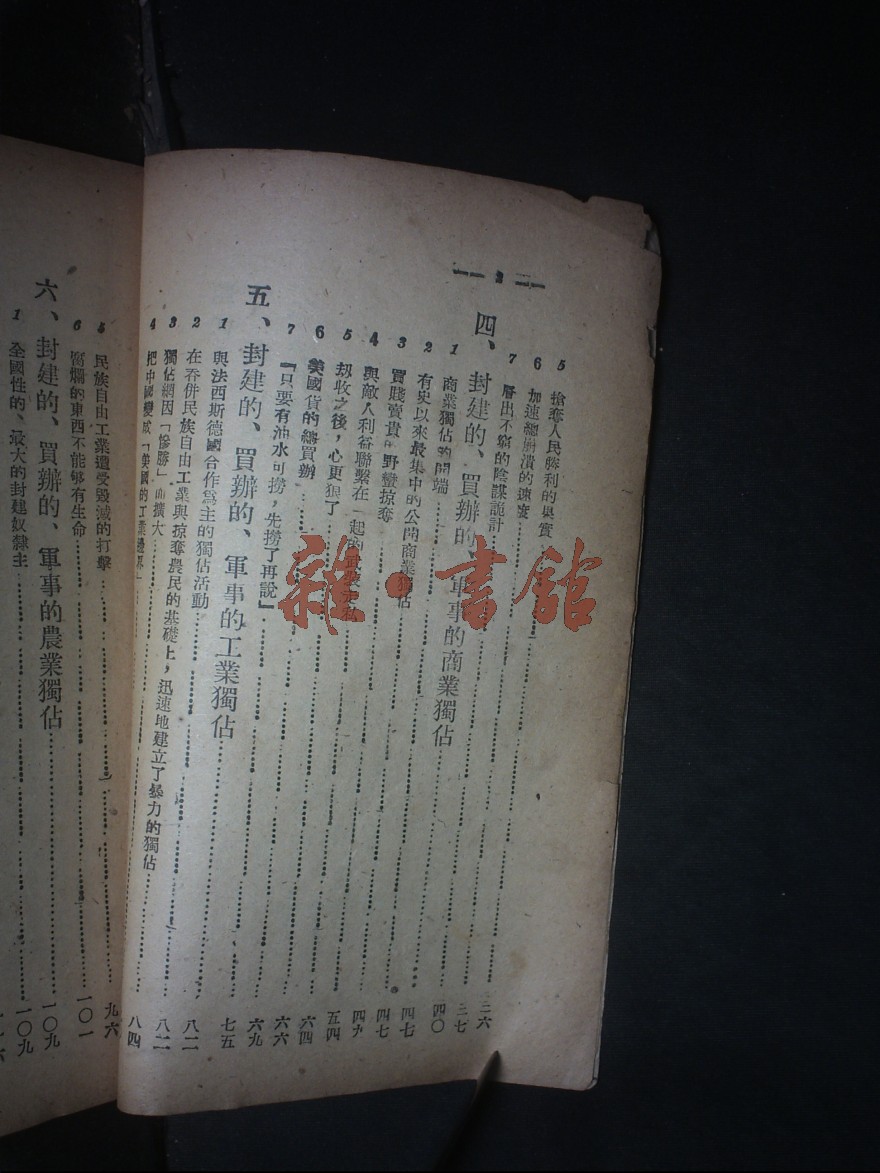 — 2 —
5 搶奪人民勝利的果實
6 加速總崩潰的速度
7 層出不窮的陰謀詭計 三六
四、封建的、買辦的、軍事的商業獨佔 三七
1 商業獨佔的開端 四〇
2 有史以來最集中的公開商業獨佔 四七
3 買賤賣貴的野蠻掠奪 四七
4 與敵人利益聯繫在一起的 四九
5 刼收之後，心更狠了 五四
6 美國貨的總買辦 六四
7 「只要有油水可撈，先撈了再說」 六六
五、封建的、買辦的、軍事的工業獨佔 六九
1 與法西斯德國合作為主的獨佔活動 七五
2 在吞併民族自由工業與掠奪農民的基礎上，迅速地建立了暴力的獨佔 八二
3 獨佔網因「慘勝」而擴大 八二
4 把中國變成「美國的工業邊界」 八四
5 民族自由工業遭受毀滅的打擊 九六
6 腐爛的東西不能够有生命 一〇一
六、封建的、買辦的、軍事的農業獨佔 一〇九
1 全國性的、最大的封建奴隸主 一〇九
雜·書館